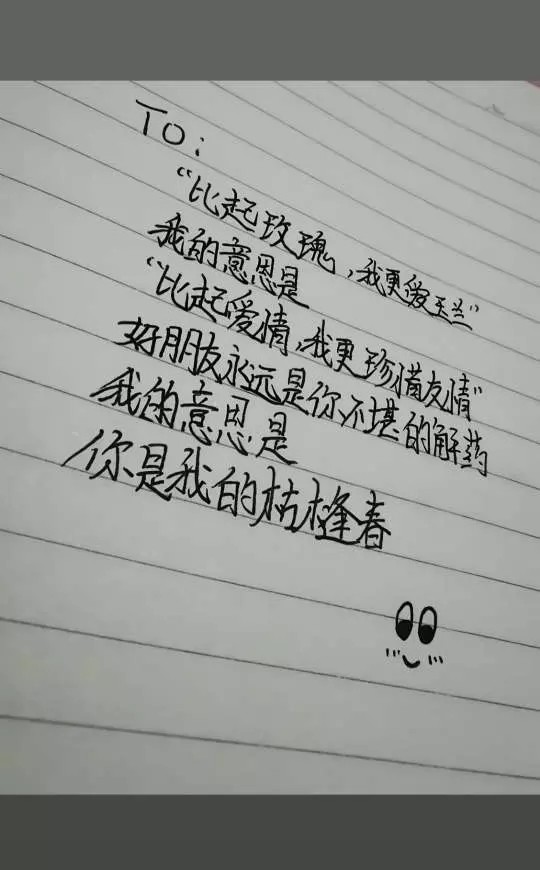 To:
“比起玫瑰,我更爱玉兰”
我的意思是
“比起爱情,我更珍惜友情”
好朋友永远是你不堪的解药
我的意思是
你是我的枯木逢春